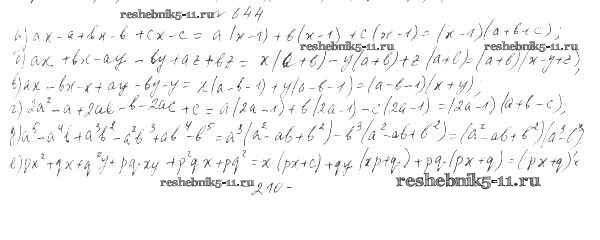 reshebnik5-11.ru 644
а) ax - a + bx - b + cx - c = a(x-1) + b(x-1) + c(x-1) = (x-1)(a+b+c);
reshebnik5-11.ru
б) ax + bx - ay - by + az + bz = x(a+b) - y(a+b) + z(a+b) = (a+b)(x-y+z);
в) ax - bx - x + ay - by - y = x(a-b-1) + y(a-b-1) = (a-b-1)(x+y);
г) 2a² - a + 2ab - b - 2ac + c = a(2a-1) + b(2a-1) - c(2a-1) = (2a-1)(a+b-c);
д) a⁵ - a⁴b + a³b² - a²b³ + ab⁴ - b⁵ = a³(a²-ab+b²) - b³(a²-ab+b²) = (a²-ab+b²)(a³-b³)
е) px² + qx + q²y + pqxy + p²qx + pq² = x(px+q) + qy(xp+q) + pq(px+q) = (px+q)·
reshebnik5-11.ru reshebnik5-11.ru
210 -